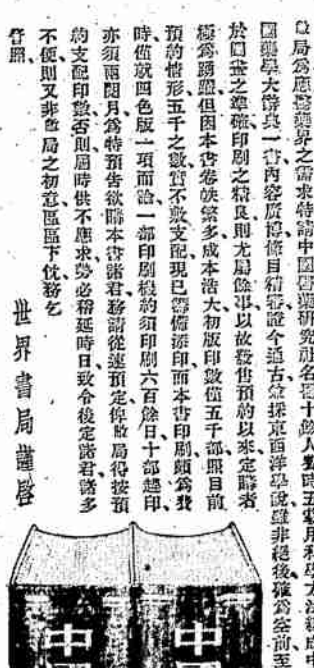 敝局爲應醫藥界之需求特請中國醫藥研究社名醫十餘人費時五載用科學方法編成中
國藥學大辭典一書內容廣博條目精審證今通古兼採東西洋學說雖非絕後確爲空前至
於圖畫之準確印刷之精良則尤屬餘事以故發售預約以來定購者
極爲踴躍但因本書卷帙繁多成本浩大初版印數僅五千部照目前
預約情形五千之數實不敷支配現已籌備添印而本書印刷頗爲費
時僅就四色版一項而論一部印刷機約須印刷六百餘日十部趕印
亦須兩閱月爲特預告欲購本書諸君務請從速預定俾敝局得按預
約支配印數否則屆時供不應求勢必稽延時日致令後定諸君諸多
不便則又非敝局之初意區區下忱務乞
詧照
世界書局謹啓
中國
中國